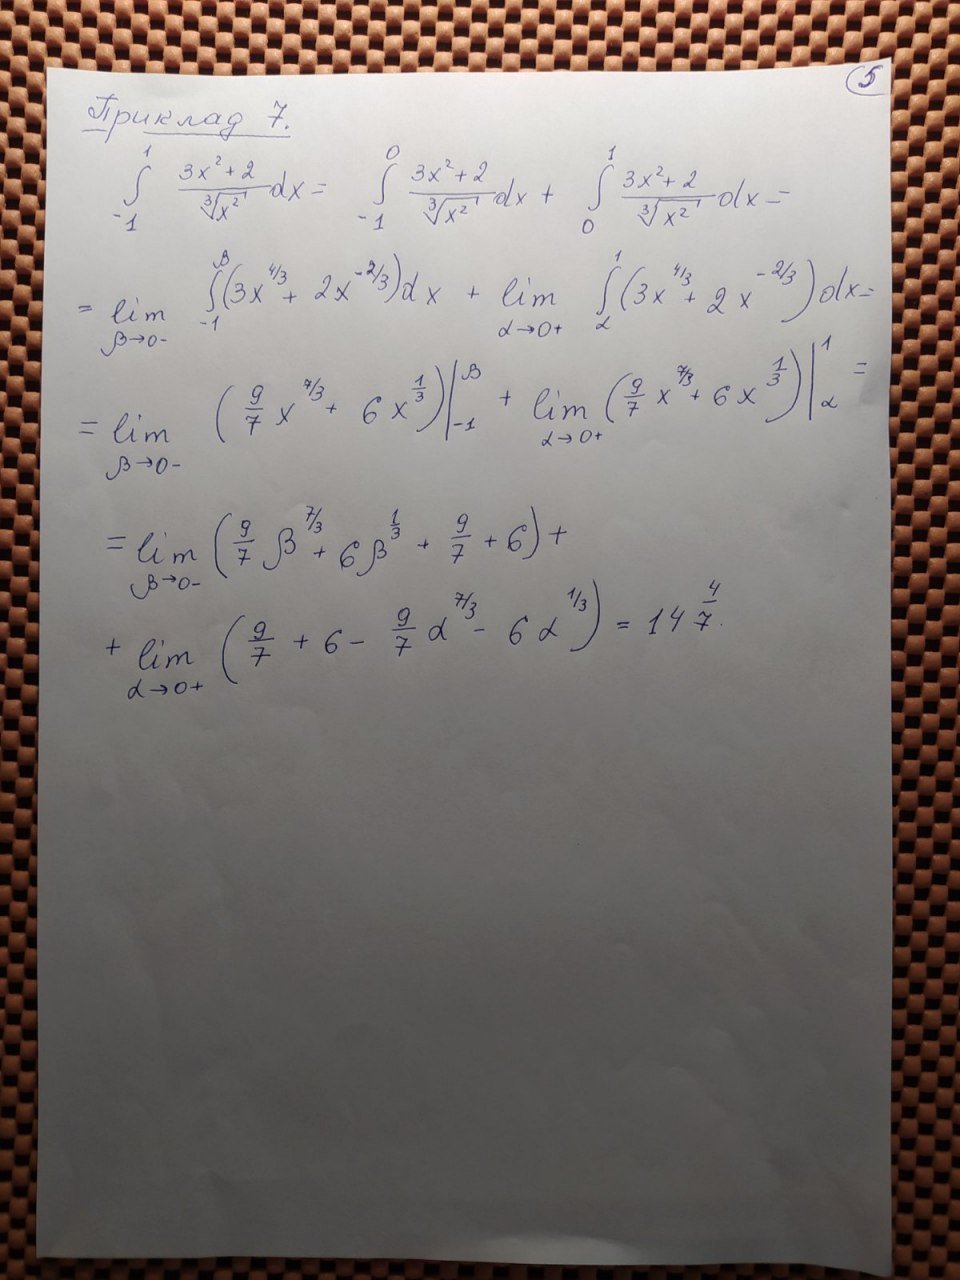 5
Приклад 7.
∫₋₁¹ (3x² + 2)/∛(x²) dx = ∫₋₁⁰ (3x² + 2)/∛(x²) dx + ∫₀¹ (3x² + 2)/∛(x²) dx =
= lim_{β→0-} ∫₋₁^β (3x^{4/3} + 2x^{-2/3}) dx + lim_{α→0+} ∫_α^1 (3x^{4/3} + 2x^{-2/3}) dx =
= lim_{β→0-} (9/7 x^{7/3} + 6x^{1/3})|₋₁^β + lim_{α→0+} (9/7 x^{7/3} + 6x^{1/3})|_α^1 =
= lim_{β→0-} (9/7 β^{7/3} + 6β^{1/3} + 9/7 + 6) +
+ lim_{α→0+} (9/7 + 6 - 9/7 α^{7/3} - 6α^{1/3}) = 14 4/7.